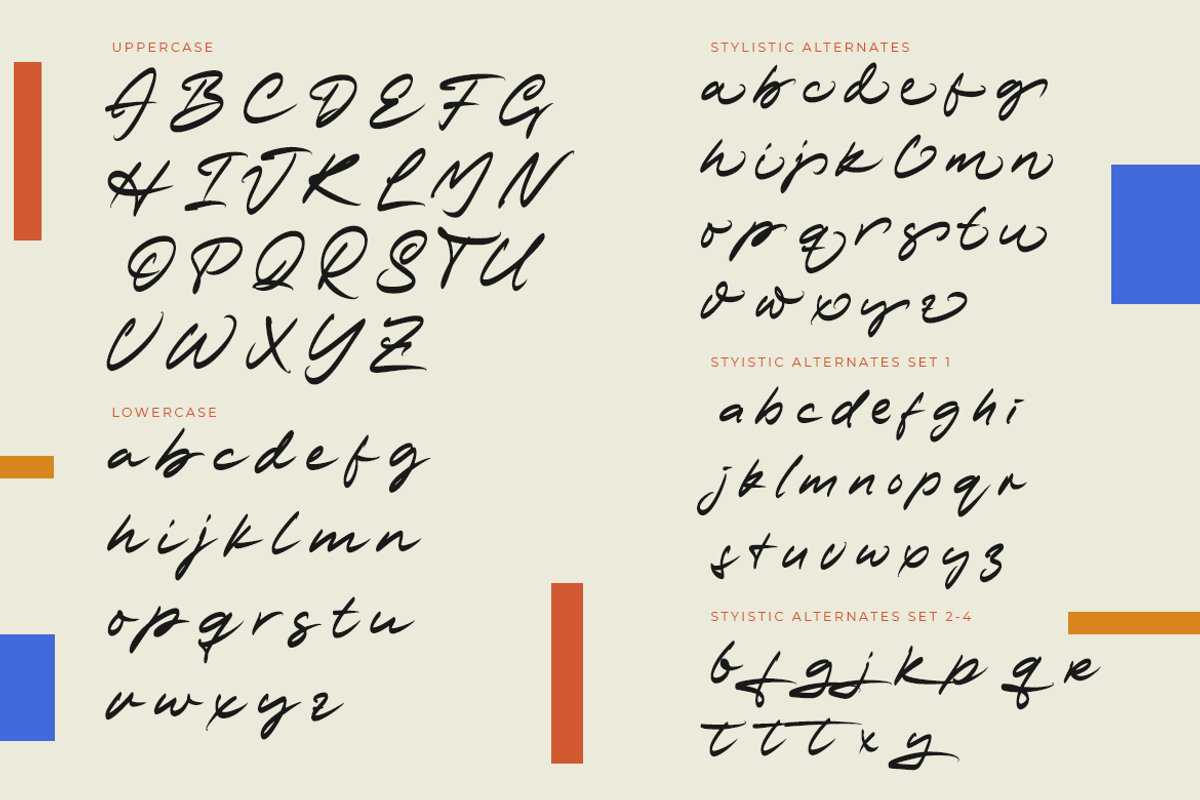 UPPERCASE
A B C D E F G
H I J K L M N
O P Q R S T U
V W X Y Z
LOWERCASE
a b c d e f g
h i j k l m n
o p q r s t u
v w x y z
STYLISTIC ALTERNATES
a b c d e f g
h i j k l m n
o p q r s t u
v w x y z
STYISTIC ALTERNATES SET 1
a b c d e f g h i
j k l m n o p q r
s t u v w x y z
STYISTIC ALTERNATES SET 2-4
b f g j k p q r
t t t x y